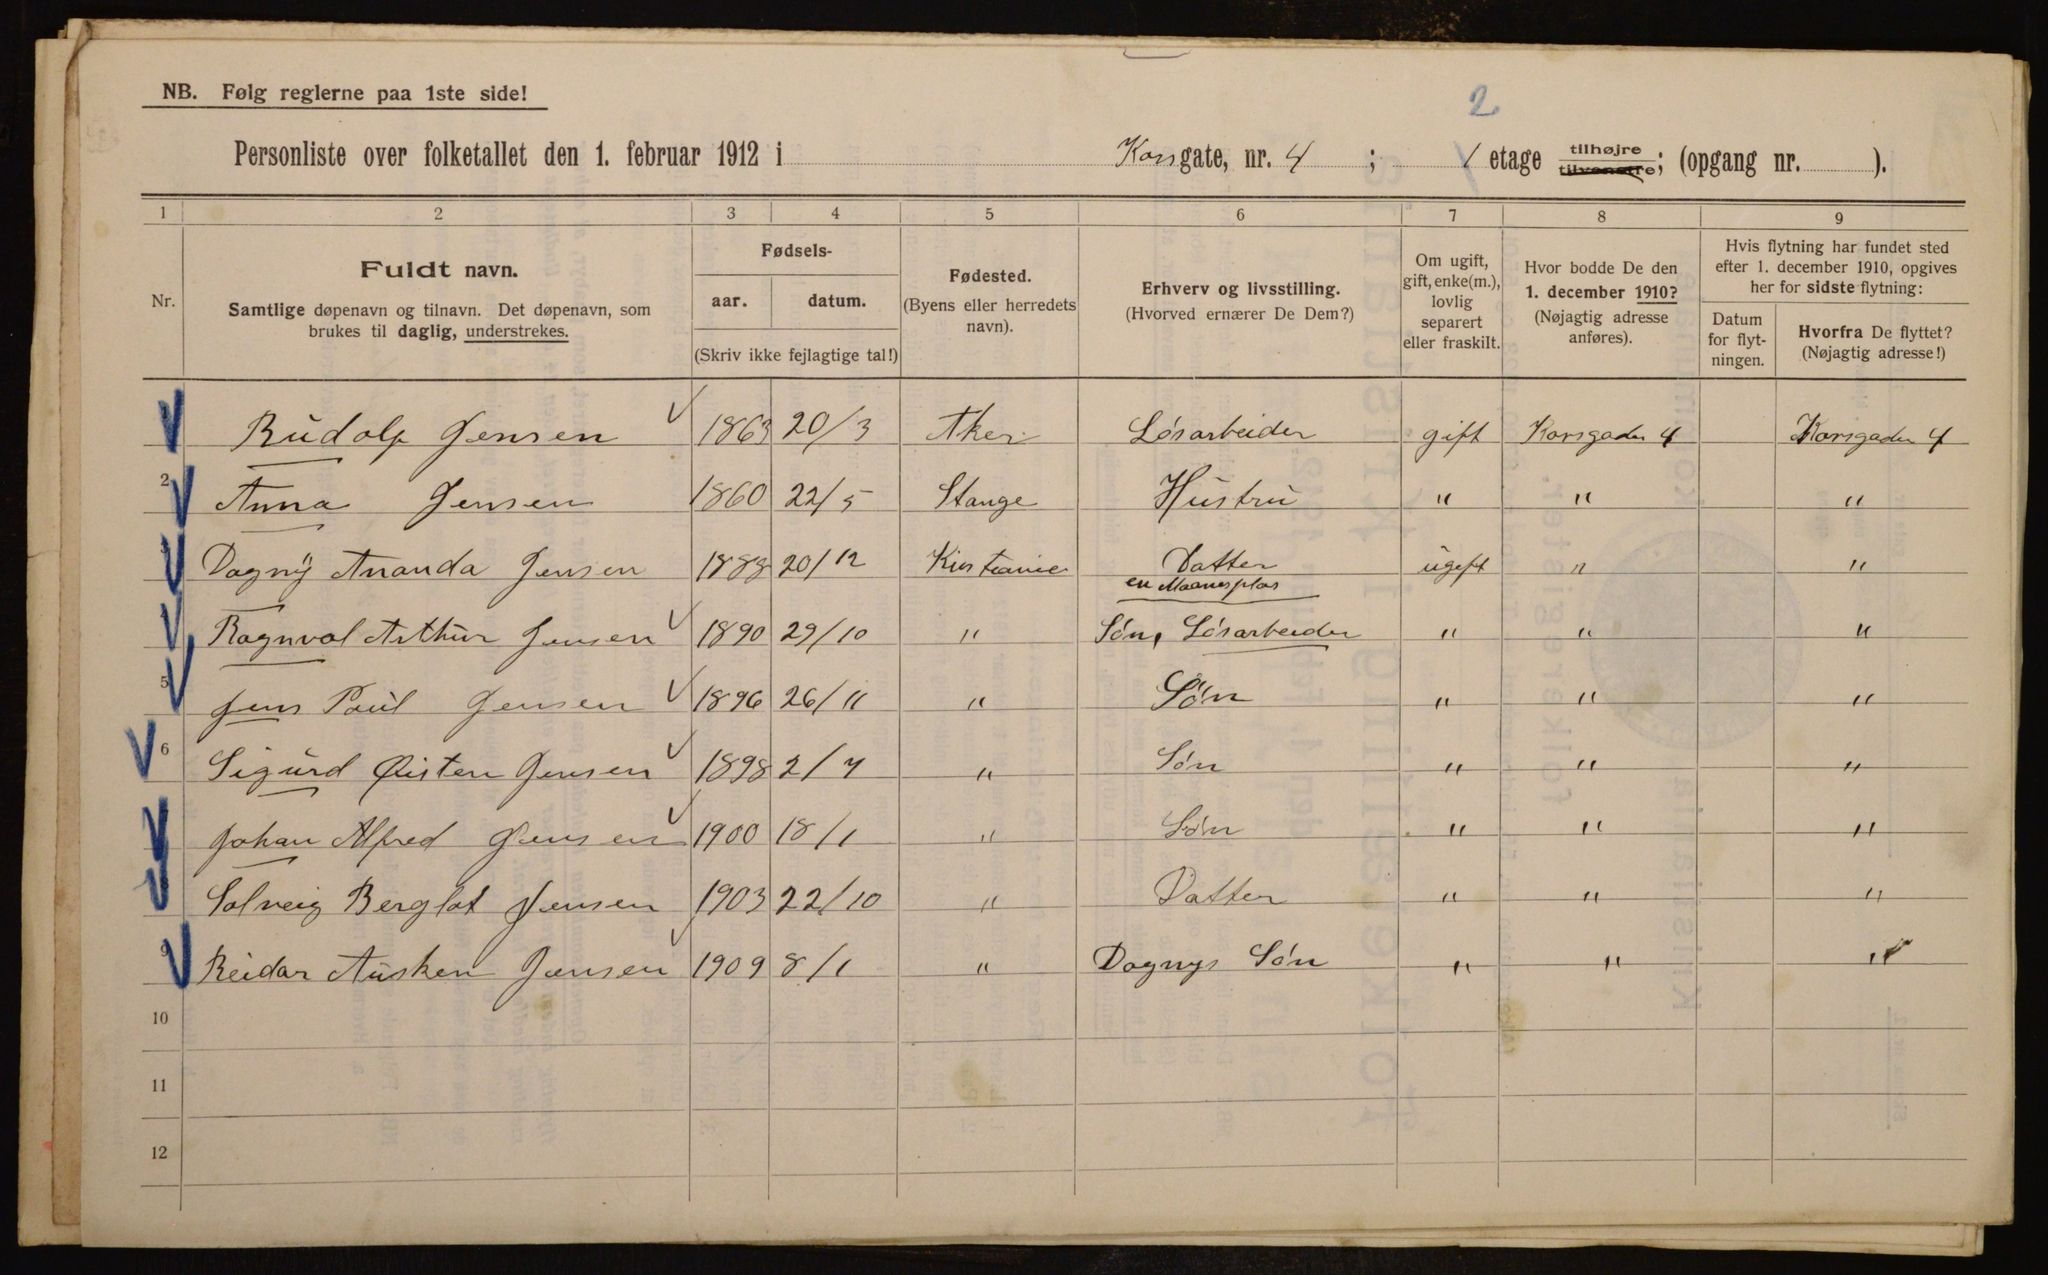 NB. Følg reglerne paa 1ste side!
2
Personliste over folketallet den 1. februar 1912 i Korsgate, nr. 4 ; 1 etage tilhøjre tilvenstre; (opgang nr. ).
1 2 3 4 5 6 7 8 9
Nr.
Fuldt navn.
Samtlige døpenavn og tilnavn. Det døpenavn, som
brukes til daglig, understrekes.
Fødsels-
aar. datum.
(Skriv ikke fejlagtige tal!)
Fødested.
(Byens eller herredets
navn).
Erhverv og livsstilling.
(Hvorved ernærer De Dem?)
Om ugift,
gift, enke(m.),
lovlig
separert
eller fraskilt.
Hvor bodde De den
1. december 1910?
(Nøjagtig adresse
anføres).
Hvis flytning har fundet sted
efter 1. december 1910, opgives
her for sidste flytning:
Datum
for flyt-
ningen.
Hvorfra De flyttet?
(Nøjagtig adresse!)
Rudolf Jensen 1863 20/3 Aker Løsarbeider gift Korsgaden 4 Korsgaden 4
2 Anna Jensen 1860 22/5 Stange Hustru " " "
Dagny Ananda Jensen 1888 20/12 Kristiania Datter ugift " "
en Maanesplas
Ragnval Arthur Jensen 1890 29/10 " Søn, Løsarbeider " " "
5 Jens Paul Jensen 1896 26/11 " Søn " " "
6 Sigurd Øisten Jensen 1898 2/7 " Søn " " "
Johan Alfred Jensen 1900 18/1 " Søn " " "
Solveig Berglot Jensen 1903 22/10 " Datter " " "
9 Reidar Ausken Jensen 1909 8/1 " Dagnys Søn " " "
10
11
12